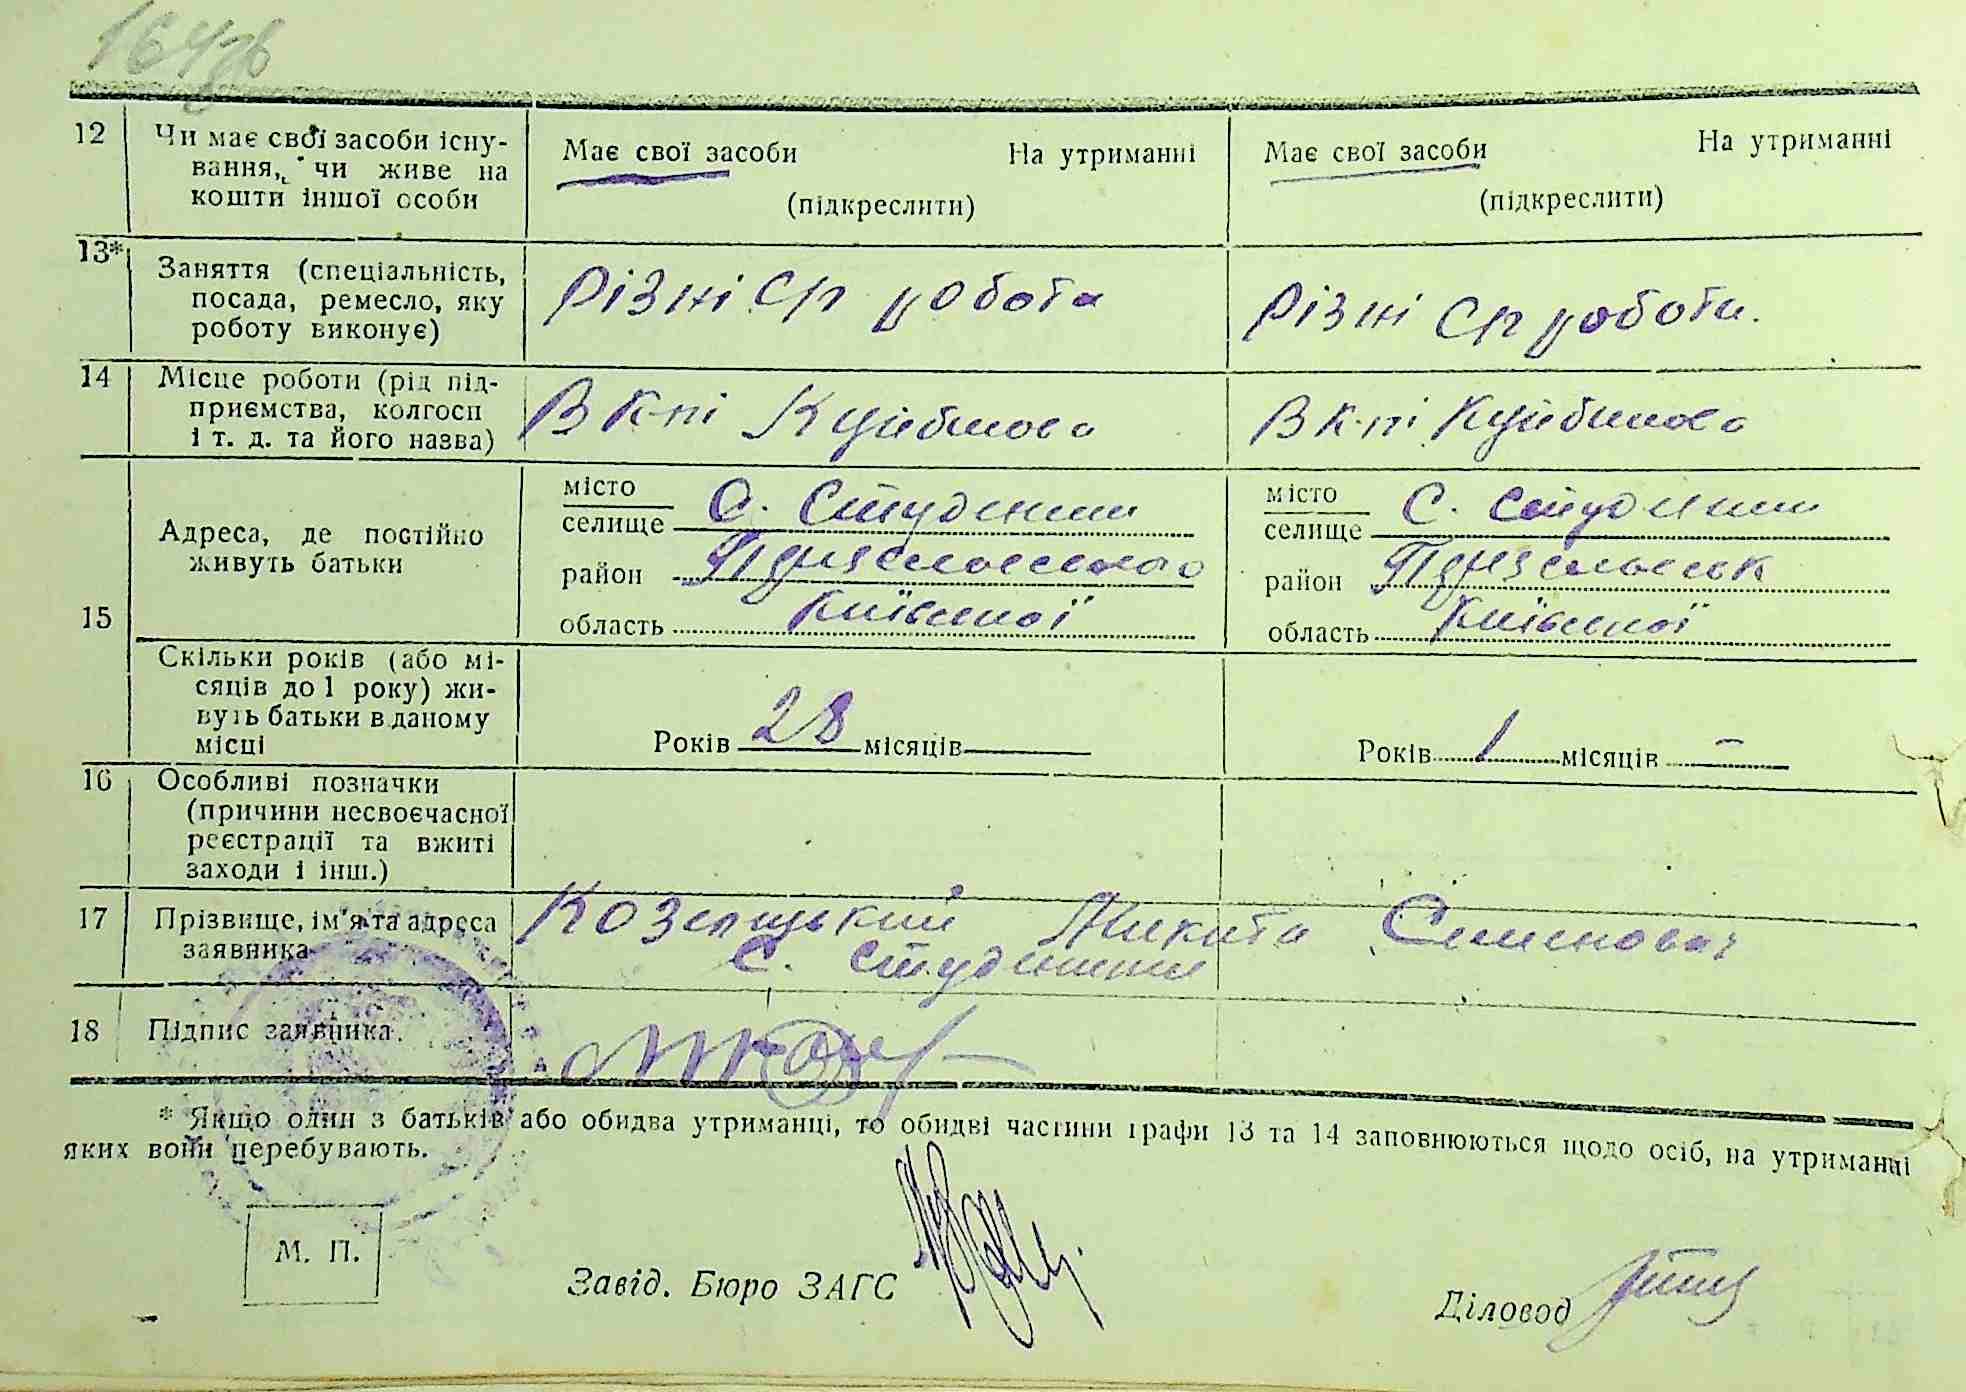 164зв
12 Чи має свої засоби існу-
вання, чи живе на
кошти іншої особи
Має свої засоби На утриманні
(підкреслити)
Має свої засоби На утриманні
(підкреслити)
13* Заняття (спеціальність,
посада, ремесло, яку
роботу виконує)
Різні Ср робота
Різні Ср роботи.
14 Місце роботи (рід під-
приємства, колгосп
і т. д. та його назва)
В к-пі Куйбишева
В к-пі Куйбишева
15 Адреса, де постійно
живуть батьки
місто
селище С. Студеники
район
область Київської
місто
селище С. Студеники
район
область Київської
Скільки років (або мі-
сяців до 1 року) жи-
вуть батьки в даному
місці
Років 28 місяців
Років 1 місяців –
16 Особливі позначки
(причини несвоєчасної
реєстрації та вжиті
заходи і інш.)
17 Прізвище, ім'я та адреса
заявника
Козелецький Микита Семенович
С. Студеники
18 Підпис заявника.
* Якщо один з батьків або обидва утриманці, то обидві частини графи 13 та 14 заповнюються щодо осіб, на утриманні
яких вони перебувають.
М. П.
Завід. Бюро ЗАГС
Діловод